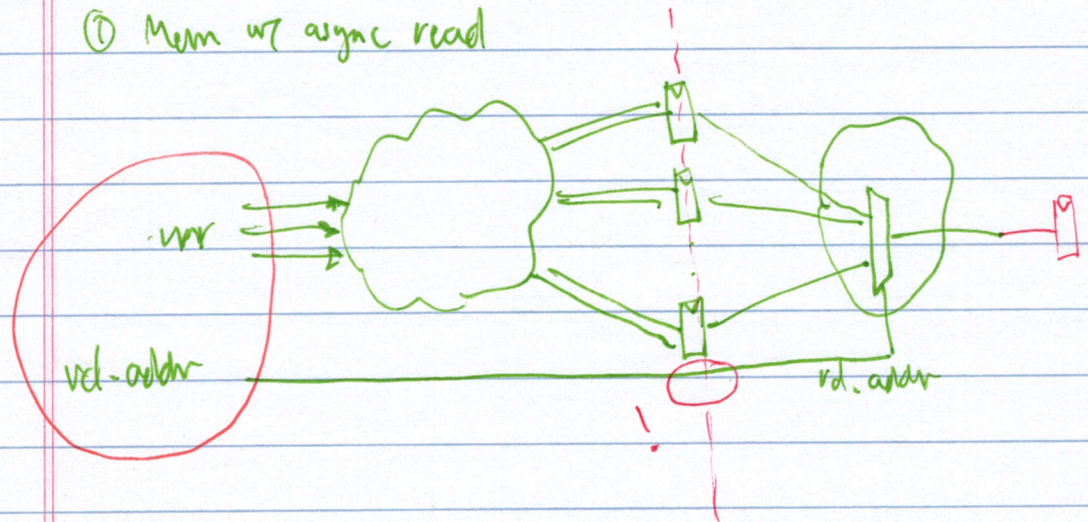 ① Mem w/ async read
wr
rd-addr
rd.addr
!